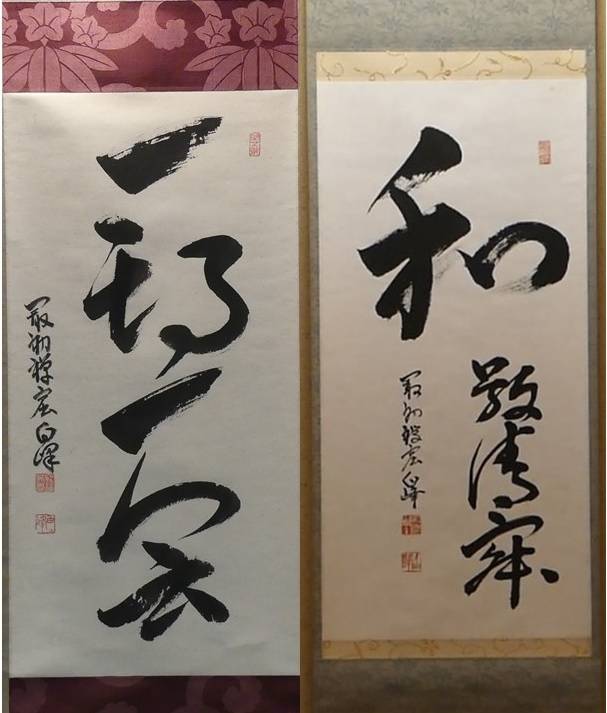 一期一会
最初禅窟 白峰
和
敬清寂
最初禅窟 白峰